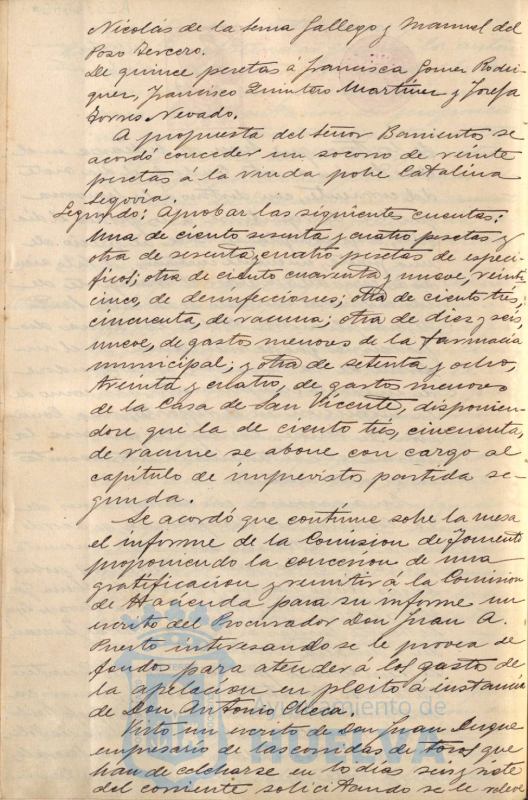 Nicolás de la Sema Gallego y Manuel del
Pozo Tercero.
De quince pesetas á Francisca Gomez Rodri
guez, Francisco Quintero Martínez y Josefa
Torres Nevado.
A propuesta del Señor Barrientos se
acordó conceder un socorro de veinte
pesetas á la viuda pobre Catalina
Segovia.
Segundo: Aprobar las siguientes cuentas:
Una de ciento sesenta y cuatro pesetas y
otra de sesenta y cuatro pesetas de especí-
ficos; otra de ciento cuarenta y nueve, veinti
cinco, de desinfecciones; otra de ciento tres,
cincuenta, de vacuna; otra de diez y seis,
nueve, de gastos menores de la farmacia
municipal; y otra de setenta y ocho,
treinta y cuatro, de gastos menores
de la Casa de San Vicente, disponien-
dose que la de ciento trés, cincuenta,
de vacuna se abone con cargo al
capítulo de imprevistos partida se-
gunda.
Se acordó que continue sobre la mesa
el informe de la Comision de Fomento
proponiendo la concesion de una
gratificacion y remitir á la Comision
de Hacienda para su informe un
escrito del Procurador Don Juan A.
Puerto interesando se le provea de
fondos para atender á los gastos de
la apelacion en pleito á instancia
de Don Antonio Checa.
Visto un escrito de Don Juan Duque
empresario de las corridas de toros que
han de celebrarse en los días seis y siete
del corriente solicitando se le releve
Ayuntamiento de
HUELVA